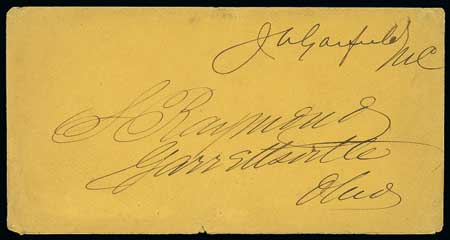 J A Garfield
MC
S Raymond
Garrettsville
Ohio